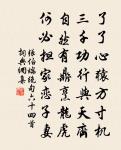 了了心猿方寸机
三千功行与天齐
自然有鼎烹龙虎
何必担家恋子妻
张伯端绝句六十四首
词典网集